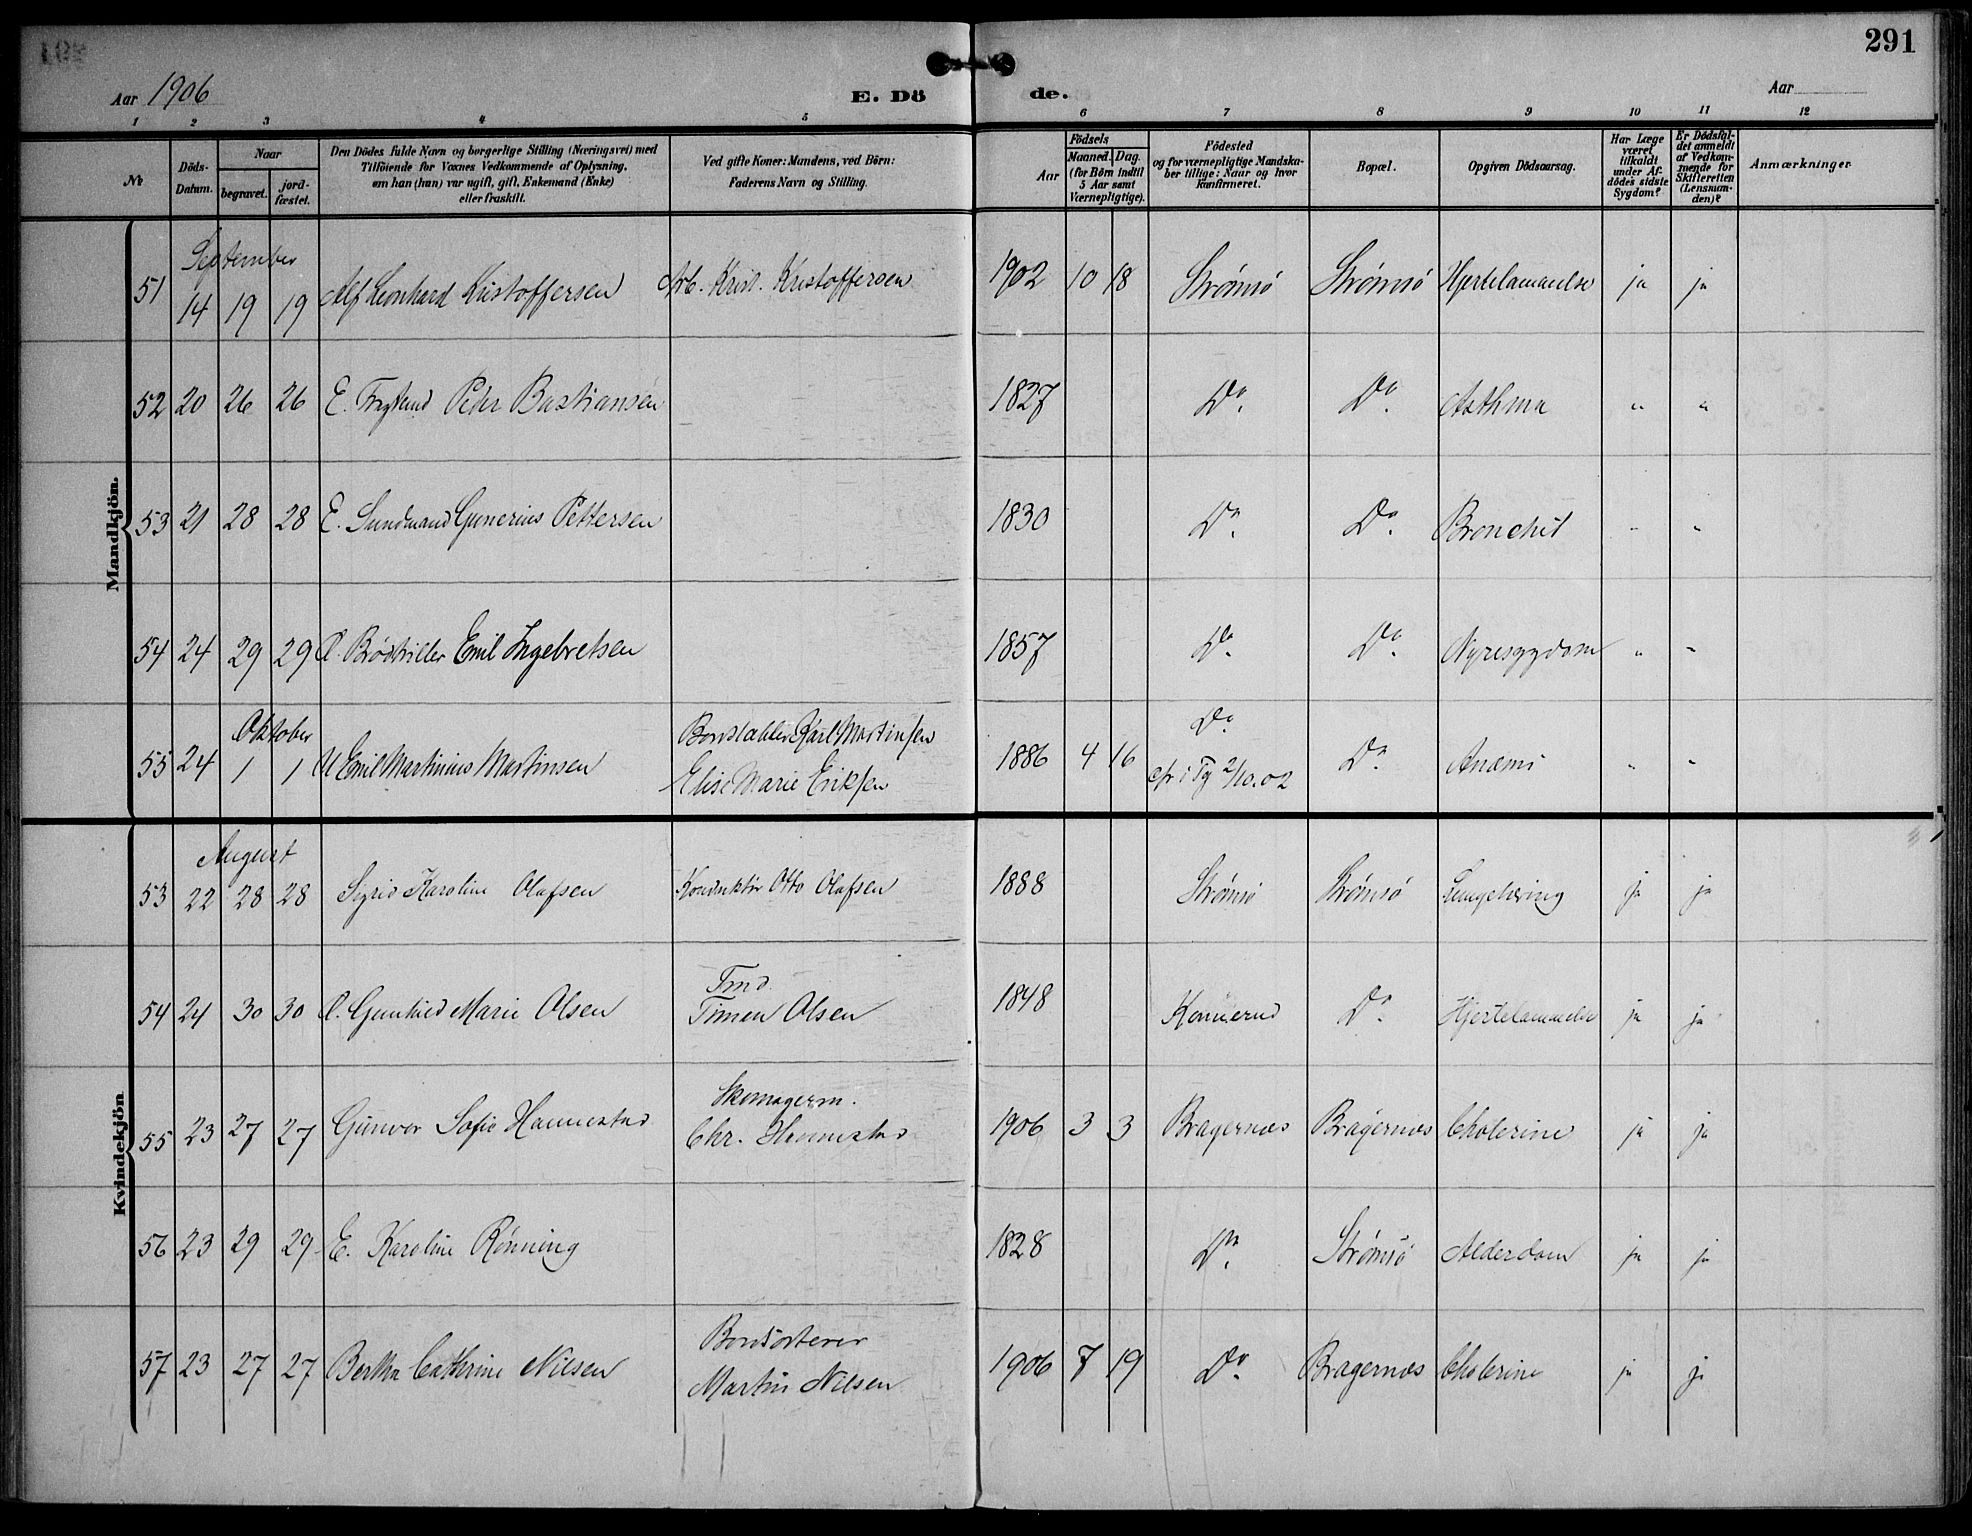 291
Aar 1906 E. Dö de. Aar
1 2 3 4 5 6 7 8 9 10 11 12
№ Döds-Datum. Naar begravet. jordfæstet. Den Dödes fulde Navn og borgerlige Stilling (Næringsvei) med Tilföiende for Voxnes Vedkommende af Oplysning, om han (hun) var ugift, gift, Enkemand (Enke) eller fraskilt. Ved gifte Koner: Mandens, ved Börn: Faderens Navn og Stilling. Aar Födsels Maaned. Dag. (for Börn indtil 5 Aar samt Værnepligtige). Födested og for værnepligtige Mandskaber tillige: Naar og hvor konfirmeret. Bopæl. Opgiven Dödsaarsag. Har Læge været tilkaldt under Afdödes sidste Sygdom? Er Dödsfaldet anmeldt af Vedkommende for Skifteretten (Lensmanden)? Anmærkninger
Mandkjön.
September
51 14 19 19 Alf Leonhard Kristoffersen Arb. Krist. Kristoffersen 1902 10 18 Strømsö Strømsö Hjertelammelse ja ja
52 20 26 26 E. Peder Bastiansen 1827 Do. Do. Asthma " "
53 21 28 28 E. Gunerius Pettersen 1830 Do. Do. Bronchit " "
54 24 29 29 Emil Ingebretsen 1857 Do. Do. Nyresygdom " "
Oktober Do.
55 24 1 1 U Emil Martinius Martinsen Karl Martinsen 1886 4 16 2/10.02 Do. Anæmi " "
Elise Marie Eriksen
Kvindekjön
August
53 22 28 28 Sigrid Karoline Olafsen Konduktör Otto Olafsen 1888 Strømsö Strømsö ja ja
54 24 30 30 Marie Olsen Olsen 1848 Konnerud Do. Hjertelammelse ja ja
Skomagerm.
55 23 27 27 Gunvor Sofie Hannestad Chr. Hannestad 1906 3 3 Bragernæs Bragernæs Cholerine ja ja
56 23 29 29 E. Karoline Rönning 1828 Do. Strømsö Alderdom ja ja
Bordsorterer
57 23 27 27 Bertha Cathrine Nilsen Martin Nilsen 1906 7 19 Do. Bragernæs Cholerine ja ja